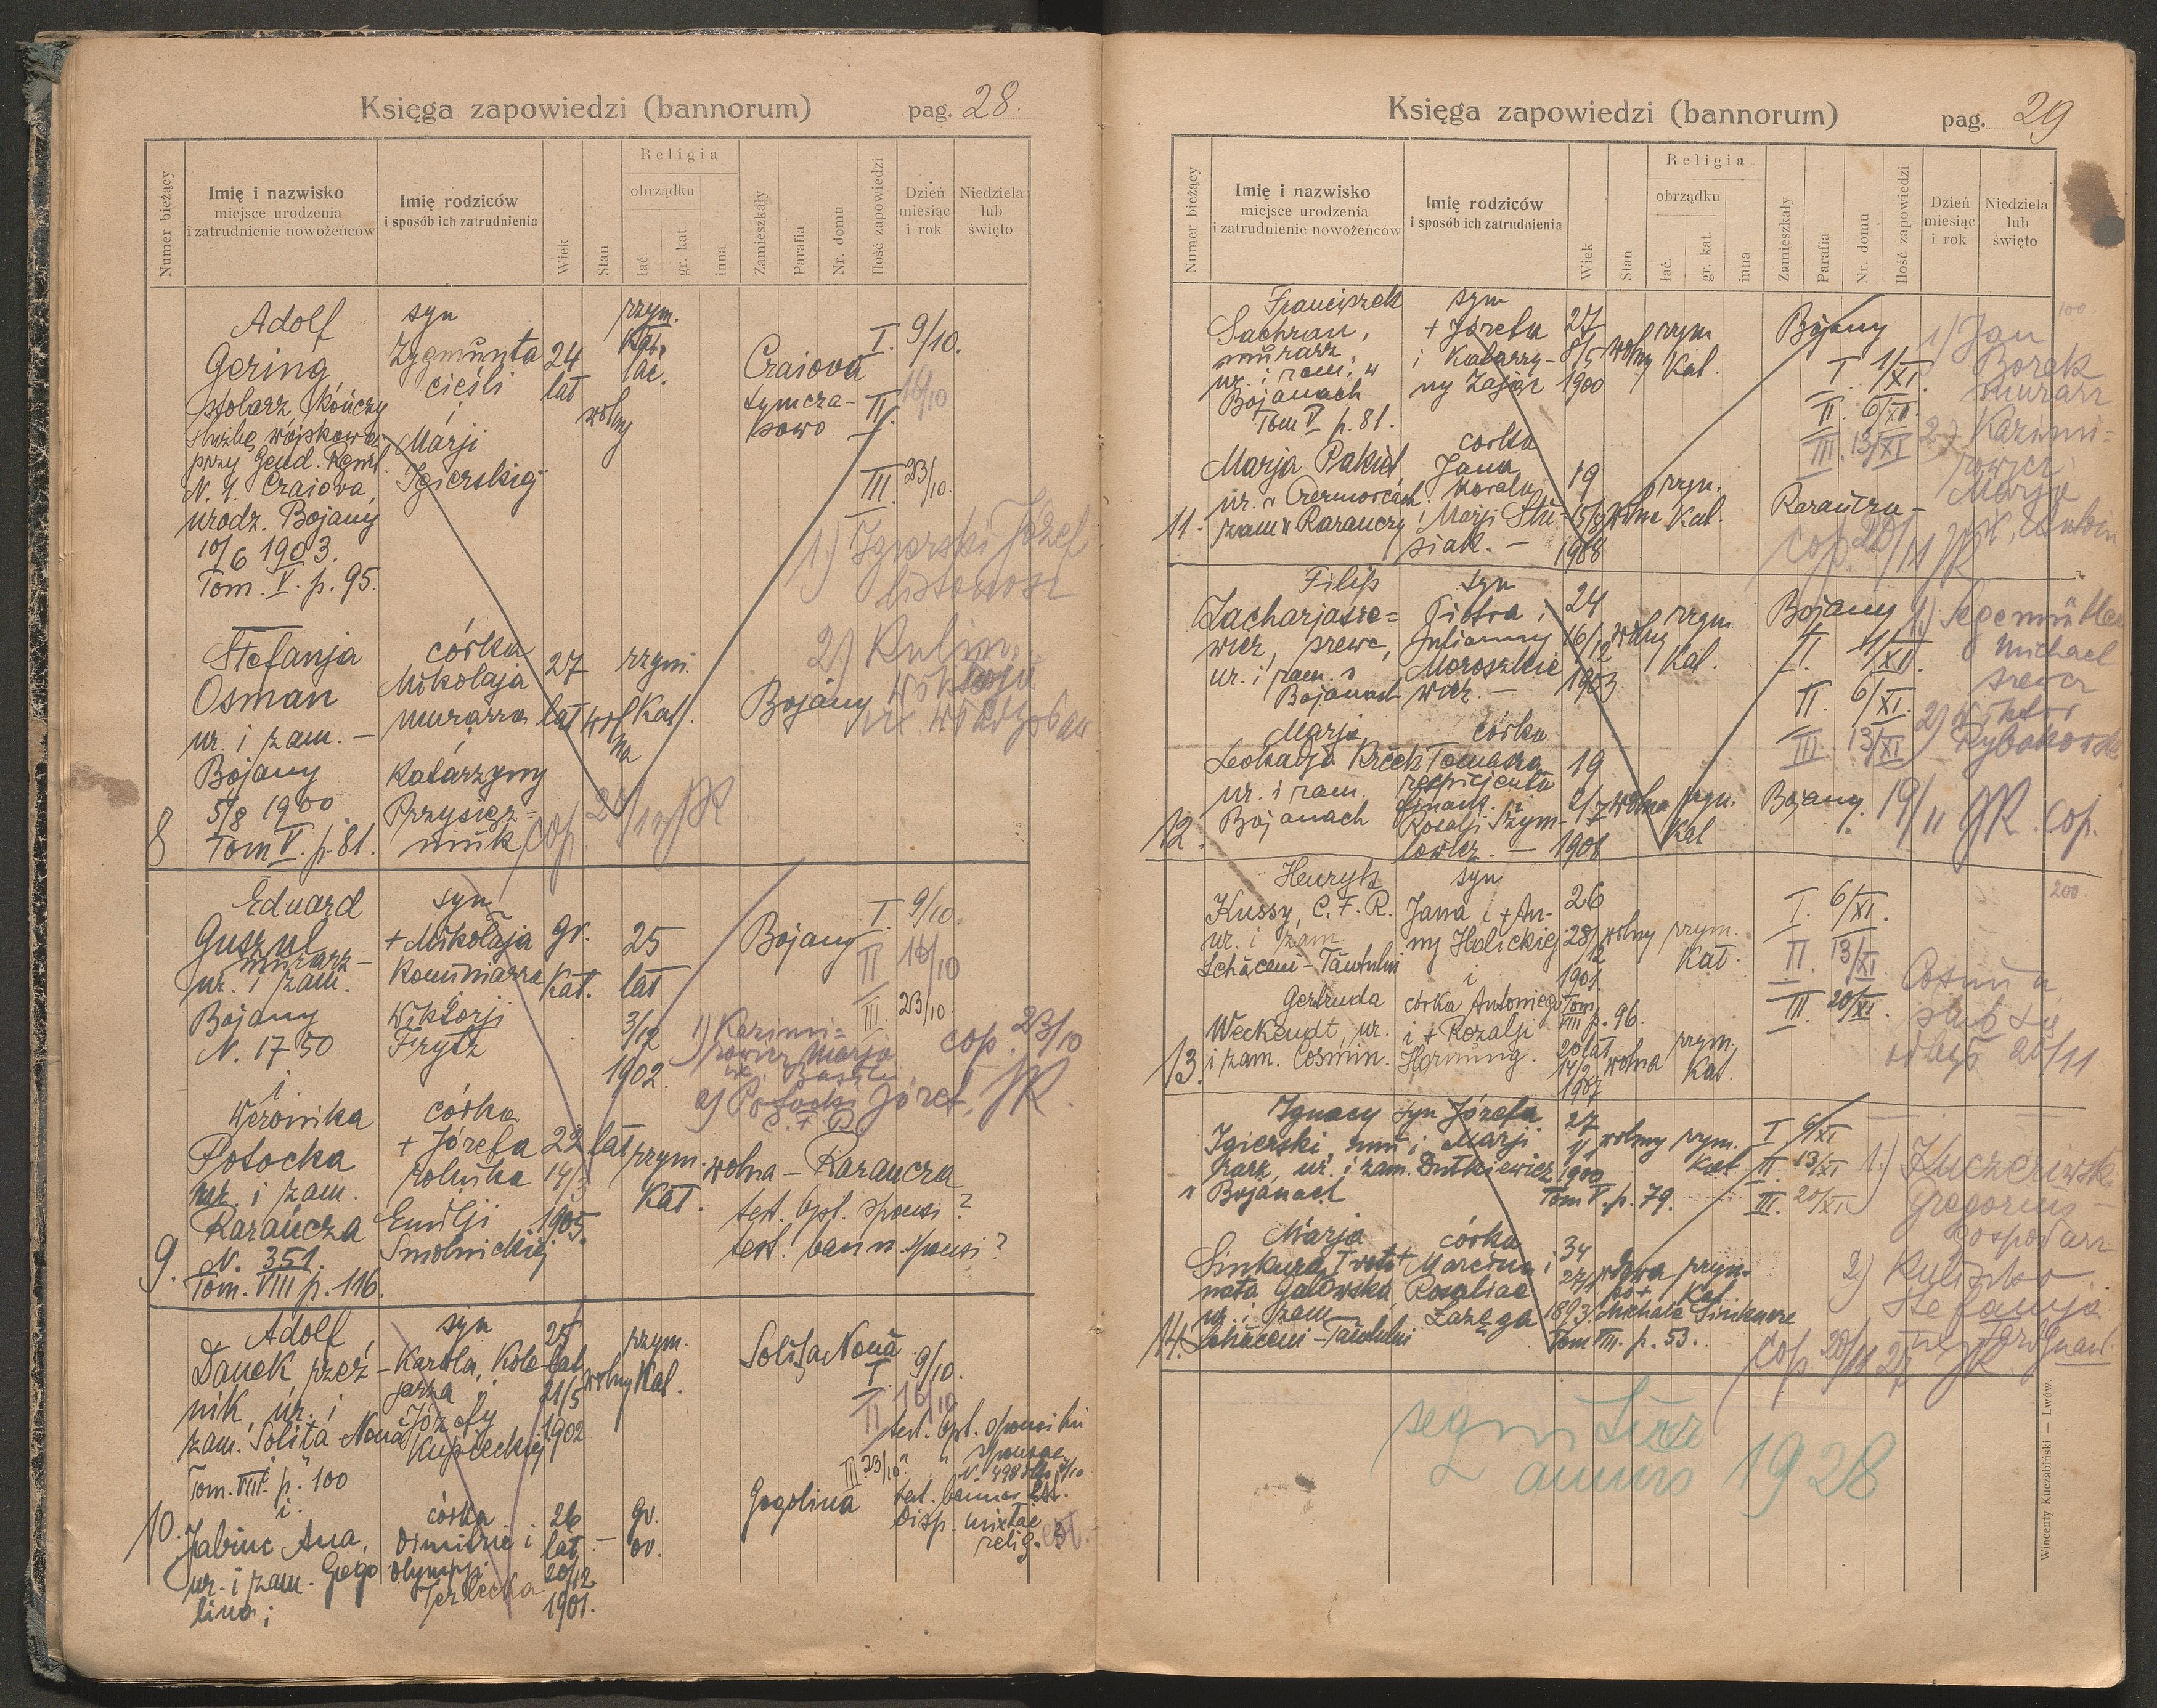 Księga zapowiedzi (bannorum)
pag. 28.
Numer bieżący
Imię i nazwisko
miejsce urodzenia
i zatrudnienie nowożeńców
Imię rodziców
i sposób ich zatrudnienia
Wiek
Stan
Religia
obrządku
łać.
gr. kat.
inna
Zamieszkały
Parafia
Nr. domu
Ilość zapowiedzi
Dzień
miesiąc
i rok
Niedziela
lub
święto
Adolf
Gering
stolarz (kończy
służbę wojskową
przy Gend. Reg.
N. 4. Craiova,
urodz. Bojany
10/6 1903.
Tom. V. p. 95.
syn
Zygmunta
cieśli
i
Marji
Igierskiej
24
lat
wolny
rzym.
Kat.
łac.
Craiova
tymcza-
sowo
I. 9/10.
II. 16/10
III. 23/10.
1.) Igierski Józef
listonosz
2.) Kulin.
Stefanja
Osman
ur. i zam. -
Bojany
5/8 1900
8 Tom V. p. 81.
córka
Mikołaja
murarza
i
Katarzyny
Przysięż=
niuk
27
lat
wol
na
rzym.
Kat.
Bojany
cop.
Eduard
Guszul
murarz -
ur. i zam.
Bojany
N. 1750
i
syn
+ Mikołaja
Kominiarza
i
Wiktorji
Frysz
gr.
Kat.
25
lat
3/12
1902.
Bojany
I 9/10.
II 16/10
III. 23/10.
1) Kazimi=
rowicz Marja
2) Potocki Józef, JK.
cop. 23/10
Weronika
Potocka
ur. i zam.
Rarańcza
N. 351.
9. Tom. VIII p. 116.
córka
+ Józefa
rolnika
i
Emilji
Smolnickiej
22 lat
14/3
1905.
rzym.
Kat.
wolna - Rarancza
test. bpt. sponsi?
test. bann. sponsi?
Adolf
Danek, rzeź-
nik, ur. i
zam. Solita Nouă
Tom. VIII. p. 100
i.
syn
Karola, Kolo-
jarza i
Józefy
Kupieckiej
25
lat
21/5
1902
wolny
rzym.
Kat.
Solița Nouă
I 9/10.
II 16/10
III 23/10
test. bpt. sponsi
sponsae
disp. mixtae
relig.
10. Jabiuc Ana,
ur. i zam. Gogo
lina;
córka
Dimitrie i
Olympji
Terlecka
26
lat
20/12
1901.
gr.
or.
Gogolina
Księga zapowiedzi (bannorum)
pag. 29
Numer bieżący
Imię i nazwisko
miejsce urodzenia
i zatrudnienie nowożeńców
Imię rodziców
i sposób ich zatrudnienia
Wiek
Stan
Religia
obrządku
łać.
gr. kat.
inna
Zamieszkały
Parafia
Nr. domu
Ilość zapowiedzi
Dzień
miesiąc
i rok
Niedziela
lub
święto
100.
Franciszek
Sachran,
murarz,
ur. i zam. w
Bojanach
Tom V p. 81.
syn
+ Józefa
i Katarzy-
ny Zając
27
1900
wolny
rzym
Kat.
Bojany
I. 1/XI.
II. 6/XI.
III. 13/XI
1) Jan
Borek
murarz
2) Kazimi=
rowicz
Marja
Marja Pakiet
zam w Rarańczy
11.
córka
Jana
kowala
i Marji Stu-
siak. -
19
15/9
1908
wolna
rzym.
Kat.
Rarańcza
cop. 20/11 JK
Filip
Zacharjasie=
wicz, szewc,
ur. i zam. w
Bojanach
syn
Piotra i
Julianny
Moroszkie
wicz. -
24
16/12
1903
wolny
rzym
Kat.
Bojany
I. 1/XI.
II. 6/XI.
III. 13/XI
1.) Segemüller
Michael
szewc
2) Wiktor
Rybakowski
Marja
Leokadja
ur. i zam.
Bojanach
12.
córka
Tomasza
respicjenta
finans. i
Rozalji Szym-
lowicz. -
19
2/7
1908
wolna
rzym.
Kat
Bojany.
19/11 JK. cop.
200.
Henryk
Kussy, C. F. R.
ur. i zam.
Schăceni-Tăutului
syn
Jana i + An-
ny Holickiej
i
26
28/12
1901.
Tom.
VIII p. 96.
wolny
rzym.
Kat.
I. 6/XI.
II. 13/XI
III 20/XI.
Cosmin
ślub się
odbył 20/11
Gertruda
Weckendt, ur.
13. i zam. Cosmin.
córka Antoniego
i + Rozalji
Hornung.
20 lat
14/2
1907
wolna
rzym.
Kat.
Ignacy
Igierski, mu-
rarz, ur. i zam.
w Bojanach
syn Józefa
i Marji
Dutkiewicz
27
1900
Tom V. p. 79.
wolny
rzym.
Kat.
I 6/XI
II 13/XI
III. 20/XI
1.) Kuczerawski
Gregorius -
Gospodarz
2) Kuliszko
Stefanja
Marja
Sinkura, I voto
nata Galowska
ur. i zam.
14. Schăceni-Tăutului
córka
+ Marcina i
Rosaliae
Łazęga
34
27/1
1893.
Tom VIII. p. 53.
wdowa
po +
Michale Sinkurze
rzym.
Kat.
cop. 20/11 27 JK
1928
Wincenty Kuczabiński — Lwów.